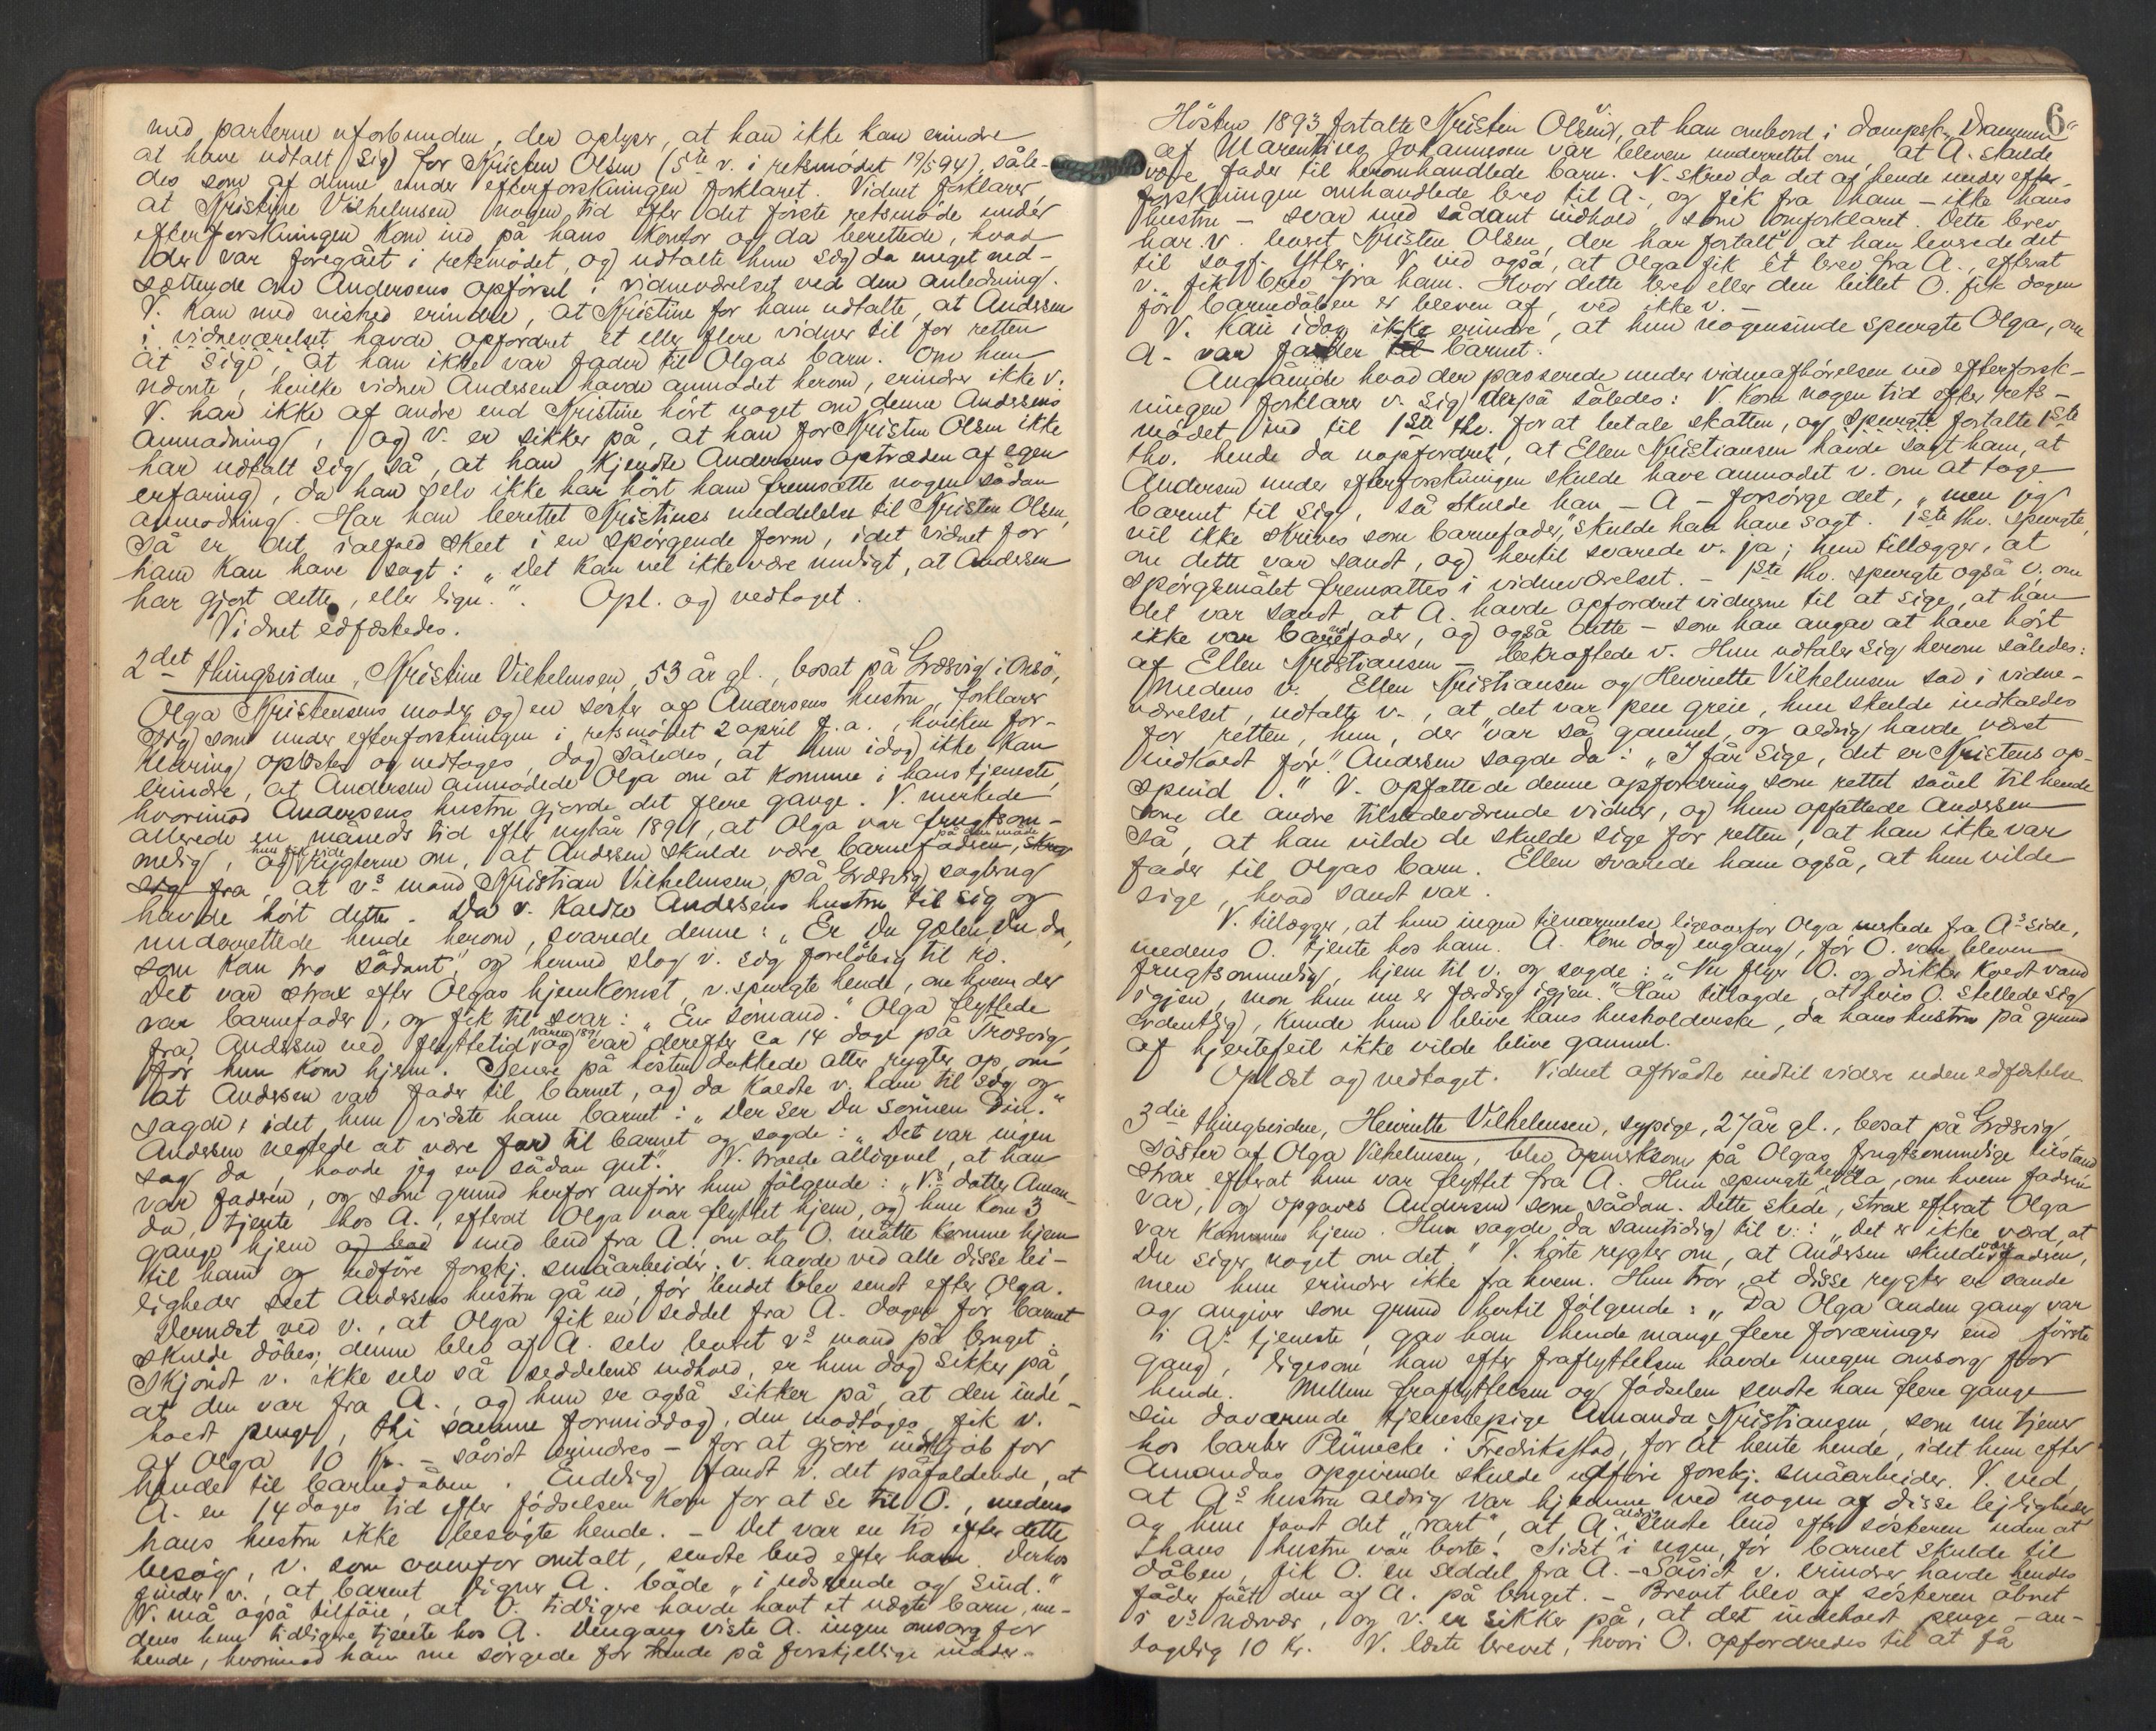 med parterne uforbunden, der oplyser, at han ikke kan erindre
at have udtalt sig for Kristen Olsen (5te v. i retsmødet 19/5 94), såle-
des som af denne under efterforskningen forklaret. Vidnet forklarer
at Kristine Vilhelmsen nogen tid efter det første retsmøde under
efterforskningen kom ind på hans kontor og da berettede, hvad
der var foregået i retsmødet, og udtalte hun sig da meget ned-
sættende om Andersens opførsel i vidneværelset ved den anledning.
V. kan med vished erindre, at Kristine for ham udtalte, at Andersen
i vidneværelset havde opfordret et eller flere vidner til for retten
at sige, at han ikke var fader til Olgas barn. Om hun
nævnte, hvilke vidner Andersen havde anmodet herom, erindrer ikke v.
V. har ikke af andre end Kristine hört noget om denne Andersens
anmodning, og v. er sikker på, at han for Kristen Olsen ikke
har udtalt sig så, at han kjendte Andersens optræden af egen
erfaring, da han selv ikke har hört ham fremsætte nogen sådan
anmodning. Har han berettet Kristines meddelelse til Kristen Olsen,
så er det ialfald skeet i en spörgende form, idet vidnet for
ham kan have sagt: "Det kan vel ikke være muligt, at Andersen
har gjort dette, eller lign.". Opl. og vedtaget.
Vidnet edfæstedes.
2det thingsvidne, Kristine Vilhelmsen, 53 år gl., bosat på Græsvig i Onsö,
Olga Kristensens moder og en söster af Andersens hustru, forklarer
sig som under efterforskningen i retsmödet 2 april f.a., hvilken for-
klaring oplæstes og vedtoges, dog således, at hun idag ikke kan
erindre, at Andersen anmodede Olga om at komme i hans tjeneste,
hvorimod Andersens hustru gjorde det flere gange. V. merkede
allerede en måneds tid efter nytår 1891, at Olga var frugtsom-
melig, og hun fik vide rygterne om, at Andersen skulde være barnefaderen, på den måde
sig fra, at vs mand Kristian Vilhelmsen, på Græsvig sagbrug
havde hört dette. Da v. kaldte Andersens hustru til sig og
underrettede hende herom, svarede denne: "Er Du galen, Du da,
som kan tro sådant", og hermed slog v. sig foreløbig til ro.
Det var strax efter Olgas hjemkomst, v. spurgte hende, om hvem der
var barnefader, og fik til svar: "En sömand." Olga flyttede
fra Andersen ved flyttetid våren 1891 og var derefter ca 14 dage på Trosvig,
för hun kom hjem. Senere på hösten dukkede atter rygter op om
at Andersen var fader til barnet, og da kaldte v. ham til sig og
sagde, idet hun viste ham barnet: "Der ser Du sönnen Din."
Andersen negtede at være far til barnet og sagde: "Det var ingen
sag da, havde jeg en sådan gut". V. troede alligevel, at han
var faderen, og som grund herfor anförer hun fölgende: "V.s datter Aman-
da, tjente hos A., efterat Olga var flyttet hjem, og hun kom 3
gange hjem og bad med bud fra A. om at O. måtte komme hjem
til ham og udföre forskj. småarbeider. v. havde ved alle disse lei-
ligheder seet Andersens hustru gå ud, för budet blev sendt efter Olga.
Dernæst ved v., at Olga fik en seddel fra A. dagen för barnet
skulde döbes; denne blev af A. selv leveret vs mand på bruget.
Skjöndt v. ikke selv så seddelens indhold, er hun dog sikker på,
at den var fra A., og hun er også sikker på, at den inde-
holdt penge, thi samme formiddag, den modtoges, fik v.
af Olga 10 Kr. – såvidt erindres – for at gjöre indkjöb for
hende til barnedåben. Endelig fandt v. det påfaldende, at
A. en 14 dages tid efter födselen kom for at se til O., medens
hans hustru ikke besögte hende. – Det var en tid efter dette
besög, v. som ovenfor omtalt, sendte bud efter ham. Derhos
finder v., at barnet ligner A. både "i udseende og sind."
V. må også tilföie, at O. tidligere havde havt et uægte barn, me-
dens hun tidligere tjente hos A. Dengang viste A. ingen omsorg for
hende, hvorimod han nu sörgede for hende på forskjellige måder.
6
Hösten 1893 fortalte Kristen Olsen v., at han ombord i dampsk. "Drammen"
af Marentine Johannesen var bleven underrettet om, at A. skulde
være fader til heromhandlede barn. V. skrev da det af hende under efter-
forskningen omhandlede brev til A., og fik fra ham – ikke hans
hustru – svar med sådant indhold, som omforklaret. Dette brev
har v. leveret Kristen Olsen, der har fortalt at han leverede det
til sagf. Ytter. V. ved også, at Olga fik et brev fra A., efterat
v. fik brev fra ham. Hvor dette brev eller den billet O. fik dagen
för barnedåben er bleven af, ved ikke v. –
V. kan idag ikke erindre, at hun nogensinde spurgte Olga, om
A. var fader til barnet.
Angående hvad der passerede under vidneafhörelsen ved efterforsk-
ningen forklarer v. sig derpå således: V. kom nogen tid efter rets-
mödet ind til 1ste thv. for at betale skatten, og spurgte fortalte 1ste
thv. hende da uopfordret, at Ellen Kristiansen havde sagt ham, at
Andersen under efterforskningen skulde have anmodet v. om at tage
barnet til sig, så skulde han – A – forsörge det, "men jeg
vil ikke skrives som barnefader," skulde han have sagt. 1ste thv. spurgte,
om dette var sandt, og hertil svarede v. ja; hun tillægger, at
spörgsmålet fremsattes i vidneværelset. – 1ste thv. spurgte også v. om
det var sandt at A. havde opfordret vidnerne til at sige, at han
ikke var barnefader, og også dette – som han angav at have hört
af Ellen Kristiansen – bekræftede v. Hun udtaler sig herom således:
Medens v., Ellen Kristiansen og Henriette Vilhelmsen sad i vidne-
værelset, udtalte v., at det var pen greie, hun skulde indkaldes
for retten, hun, der "var så gammel, og aldrig havde været
indkaldt för". Andersen sagde da: "I får sige, det er Kristens op-
spind." V. opfattede denne opfordring som rettet såvel til hende
som de andre tilstedeværende vidner, og hun opfattede Andersen
så, at han vilde de skulde sige for retten, at han ikke var
fader til Olgas barn. Ellen svarede ham også, at hun vilde
sige, hvad sandt var.
V. tillægger, at hun ingen tilnærmelse ligeoverfor Olga merkede fra As side,
medens O. tjente hos ham. A. kom dog engang, för O. var bleven
frugtsommelig, hjem til v. og sagde: "Nu flyer O. og drikker koldt vand
igjen, mon hun nu er færdig igjen." Han tillagde, at hvis O. stellede sig
ordentlig, kunde hun blive hans husholderske, da hans hustru på grund
af hjertefeil ikke vilde blive gammel.
Oplæst og vedtaget. Vidnet aftrådte indtil videre uden edfæstelse.
3die thingsvidne, Henriette Vilhelmsen, sypige, 27 år gl., bosat på Græsvig,
söster af Olga Vilhelmsen, blev opmerksom på Olgas frugtsommelige tilstand
strax efterat hun var flyttet fra A. Hun spurgte hende da, om hvem faderen
var, og opgaves Andersen som sådan. Dette skede, strax efterat Olga
var kommen hjem. Hun sagde da samtidig til v.: "Det er ikke værd, at
Du siger noget om det." V. hörte rygter om, at Andersen skulde være faderen,
men hun erindrer ikke fra hvem. Hun tror, at disse rygter er sande
og angiver som grund hertil fölgende: "Da Olga anden gang var
i As tjeneste, gav han hende mange flere foræringer end förste
gang, ligesom han efter fraflyttelsen havde megen omsorg for
hende. Mellem fraflyttelsen og födselen sendte han flere gange
sin daværende tjenestepige Amanda Kristiansen, som nu tjener
hos barber Plünecke i Fredriksstad, for at hente hende, idet hun efter
Amandas opgivende skulde udföre forskj. småarbeider. V. ved,
at As hustru aldrig var hjemme ved nogen af disse lejligheder
og hun fandt det "rart", at A. aldrig sendte bud efter sösteren uden at
hans hustru var borte. Sidst i ugen, för barnet skulde til
dåben, fik O. en seddel fra A. – Såvidt v. erindrer havde hendes
fader fået den af A. på bruget. – Brevet blev af sösteren åbnet
i vs nærvær, og v. er sikker på, at det indeholdt penge – an-
tagelig 10 Kr. V. læste brevet, hvori O. opfordredes til at få